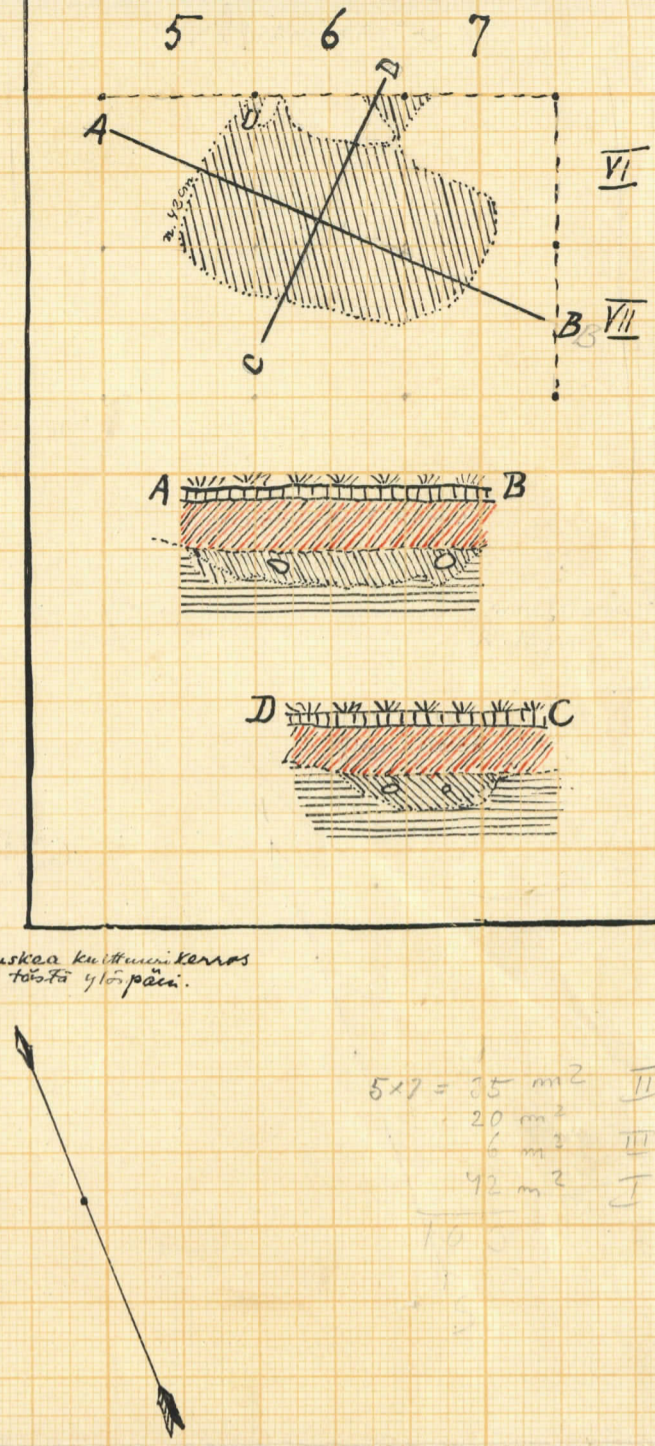 5 6 7
D
A D
VI
n. 42 cm
B B VII
C
A B
D C
uskea kulttuurikerros
tästä ylöspäin.
5x7 = 35 m² II
20 m²
6 m² III
42 m² I